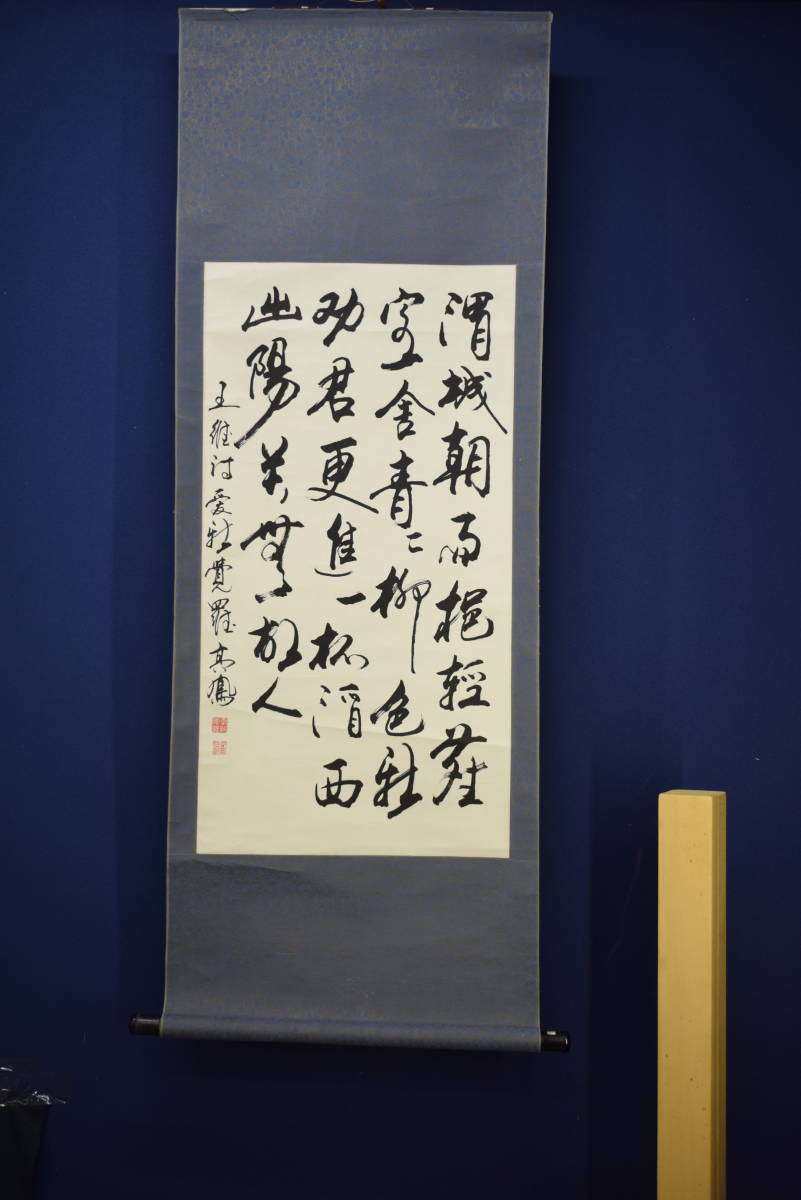 渭城朝雨挹輕塵
客舍青々柳色新
劝君更進一杯酒西
出陽关無故人
王維诗愛新覺羅